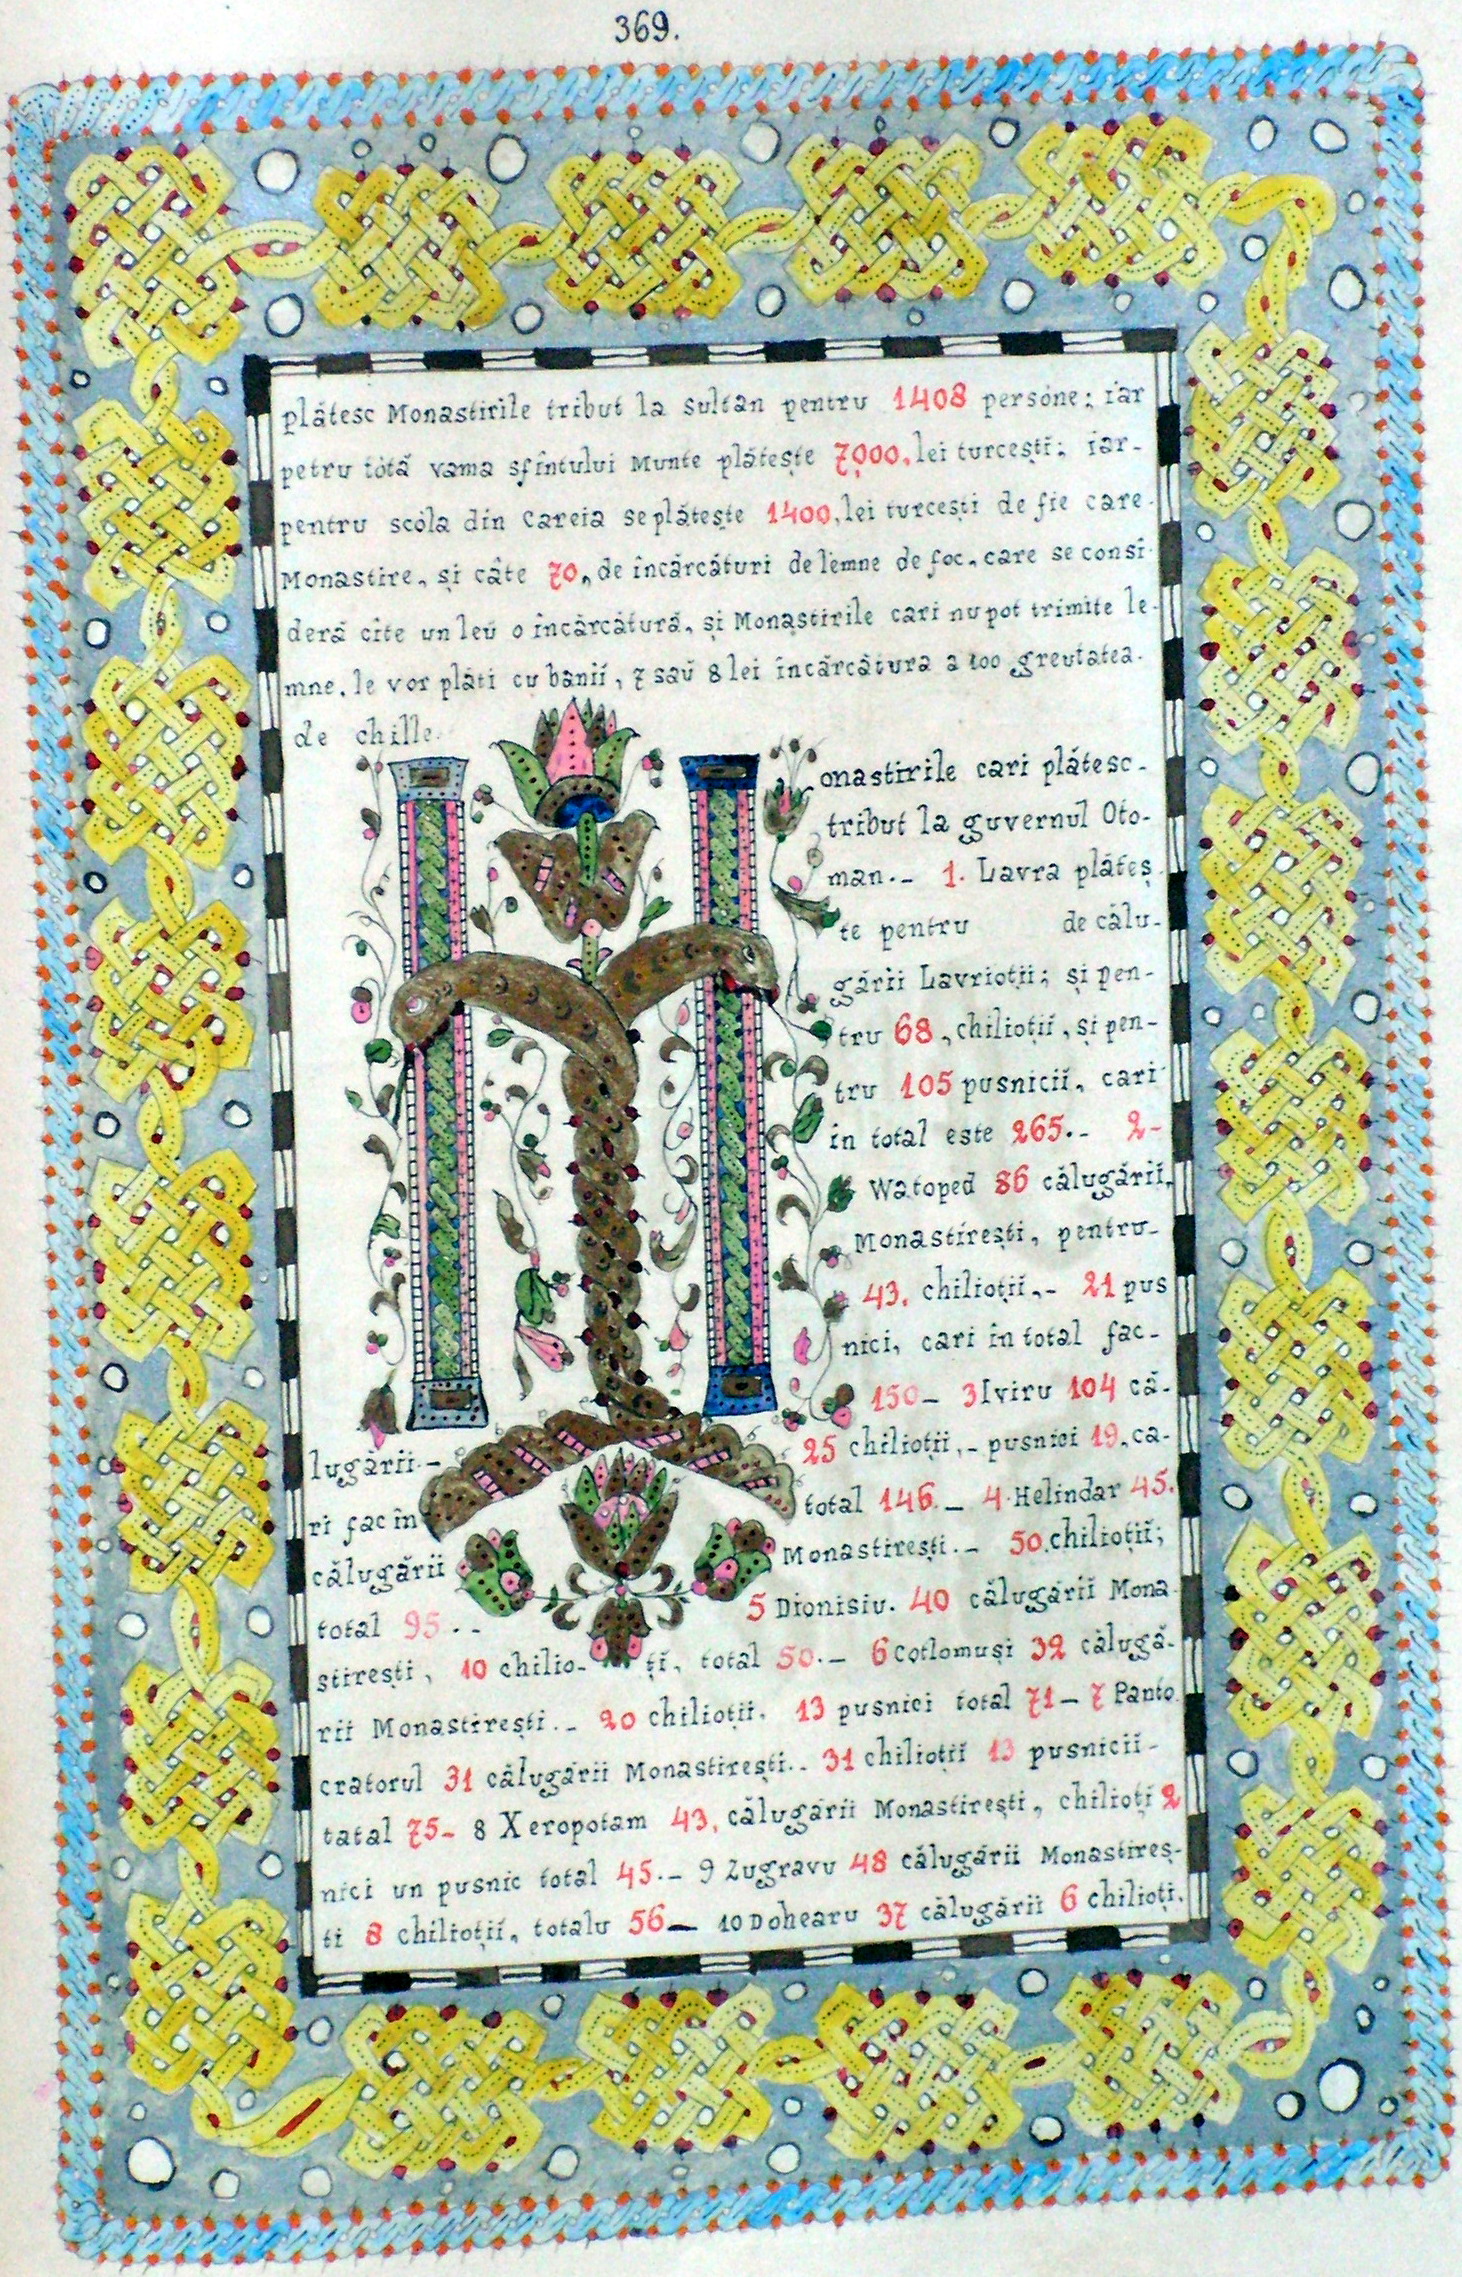 369.
plătesc Monastirile tribut la sultan pentru 1408 persóne; iar
petru tótă vama sfîntului Munte plătește 7000, lei turcești; iar-
pentru scóla din Careia se plătește 1400, lei turcești de fie care-
Monastire, și câte 70, de încărcături de lemne de foc, care se consi-
deră cîte un leŭ o încărcătură, și Monastirile cari nu pot trimite le-
mne, le vor plăti cu baniĭ, 7 saŭ 8 lei încărcătura a 100 greutatea
de chille.
M
onastirile cari plătesc-
tribut la guvernul Oto-
man.- 1. Lavra plăteș
te pentru de călu-
gării Lavrioții; și pen-
tru 68, chilioții, și pen-
tru 105 pusnicii, cari
în total este 265.- 2-
Watoped 86 călugării,
Monastirești, pentru-
43, chilioții,- 21 pus
nici, cari în total fac-
150- 3 Iviru 104 că-
lugării.- 25 chilioții,- pusnici 19, ca-
ri fac în total 146.- 4. Helindar 45.
călugării Monastirești.- 50. chilioții;
total 95.- 5 Dionisiu. 40 călugării Mona
stirești, 10 chilio- ți, total 50.- 6 Cotlomuși 32 călugă-
rii Monastirești.- 20 chilioții, 13 pusnici total 71- 7 Panto
cratorul 31 călugării Monastirești.. 31 chilioții 13 pusnicii-
tatal 75- 8 Xeropotam 43, călugării Monastirești, chilioți 2
nici un pusnic total 45.- 9 Zugravu 48 călugării Monastireș-
ti 8 chilioții, totalu 56- 10 Dohearu 37 călugării 6 chilioți.